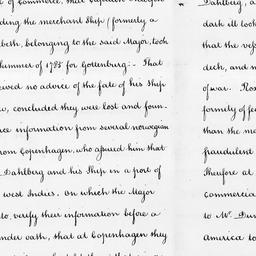 of Commerce, that Captain
ding the merchant Ship (formerly a
beth, belonging to the said Major, took
summer of 1785 for Gottenburg:- That
ewed no advice of the fate of his Ship
w, concluded they were lost and foun-
ce information from several norwegian
rom Copenhagen, who assured him that
Dahlberg and his Ship in a port of
west Indies. on which the Major
to verify their information before a
nder oath, that at Copenhagen they
Dahlberg, a
dark ill look
that the vess
deck, and n
of war. Ros
formerly of fe
than the me
fraudulent
Therefore at
Commercia
to Mr. Dum
America to